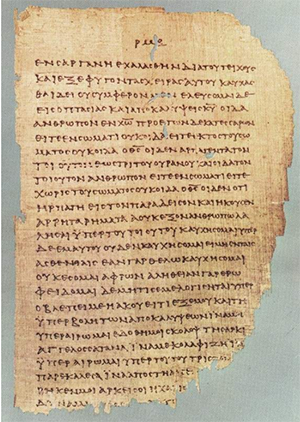 ΕΝϹΑΡΓΑΝΗ ΕΧΑΛΑϹΘΗΝ ΔΙΑ ΤΟΥ ΤΕΙΧΟΥϹ
ΚΑΙ ΕΞΕΦΥΓΟΝ ΤΑϹ ΧΕΙΡΑϹ ΑΥΤΟΥ ΚΑΥΧΑϹ
ΘΑΙ ΔΕΙ ΟΥ ϹΥΜΦΕΡΟΝ ΜΕΝ ΕΛΕΥϹΟΜΑΙ ΔΕ
ΕΙϹ ΟΠΤΑϹΙΑϹ ΚΑΙ ΑΠΟΚΑΛΥΨΕΙϹ ΚΥ ΟΙΔΑ
ΑΝΘΡΩΠΟΝ ΕΝ ΧΩ ΠΡΟ ΕΤΩΝ ΔΕΚΑΤΕϹϹΑΡΩΝ
ΕΙΤΕ ΕΝ ϹΩΜΑΤΙ ΟΥΚ ΟΙΔΑ ΕΙΤΕ ΕΚΤΟϹ ΤΟΥ ϹΩ
ΜΑΤΟϹ ΟΥΚ ΟΙΔΑ Ο ΘϹ ΟΙΔΕΝ ΑΡΠΑΓΕΝΤΑ
ΕΩϹ ΤΡΙΤΟΥ ΟΥΡΑΝΟΥ ΚΑΙ ΟΙΔΑ ΤΟΝ
ΤΟΙΟΥΤΟΝ ΑΝΘΡΩΠΟΝ ΕΙΤΕ ΕΝ ϹΩΜΑΤΙ ΕΙΤΕ
ΧΩΡΙϹ ΤΟΥ ϹΩΜΑΤΟϹ ΟΥΚ ΟΙΔΑ Ο ΘϹ ΟΙΔΕΝ ΟΤΙ
ΗΡΠΑΓΗ ΕΙϹ ΤΟΝ ΠΑΡΑΔΕΙϹΟΝ ΚΑΙ ΗΚΟΥϹΕΝ
ΑΡΡΗΤΑ ΡΗΜΑΤΑ Α ΟΥΚ ΕΞΟΝ ΑΝΘΡΩΠΩ ΛΑ
ΛΗϹΑΙ ΥΠΕΡ ΤΟΥ ΤΟΙΟΥΤΟΥ ΚΑΥΧΗϹΟΜΑΙ ΥΠΕΡ
ΔΕ ΕΜΑΥΤΟΥ ΟΥΔΕΝ ΚΑΥΧΗϹΟΜΑΙ ΕΙ ΜΗ ΕΝ ΤΑΙϹ
ΑϹΘΕΝΕΙΑΙϹ ΕΑΝ ΓΑΡ ΘΕΛΩ ΚΑΥΧΗϹΟΜΑΙ
ΟΥΚ ΕϹΟΜΑΙ ΑΦΡΩΝ ΑΛΗΘΕΙΑΝ ΓΑΡ ΕΡΩ
ΦΕΙΔΟΜΑΙ ΔΕ ΜΗ ΤΙϹ ΕΜΕ ΛΟΓΙϹΗΤΑΙ ΥΠΕΡ
Ο ΒΛΕΠΕΙ ΜΕ Η ΑΚΟΥΕΙ ΤΙ ΕΞ ΕΜΟΥ ΚΑΙ ΤΗ
ΥΠΕΡΒΟΛΗ ΤΩΝ ΑΠΟΚΑΛΥΨΕΩΝ ΙΝΑ ΜΗ
ΥΠΕΡΑΙΡΩΜΑΙ ΕΔΟΘΗ ΜΟΙ ϹΚΟΛΟΨ ΤΗ ϹΑΡΚΙ
ΑΓΓΕΛΟϹ ϹΑΤΑΝΑ ΙΝΑ ΜΕ ΚΟΛΑΦΙΖΗ
ΥΠΕΡΑΙΡΩΜΑΙ ΥΠΕΡ ΤΟΥΤΟΥ ΤΡΙϹ ΤΟΝ
ΠΑΡΕΚΑΛΕϹΑ ΙΝΑ ΑΠΟϹΤΗ
ΜΟΙ ΑΡΚΕΙ ϹΟΙ Η ΧΑΡΙϹ